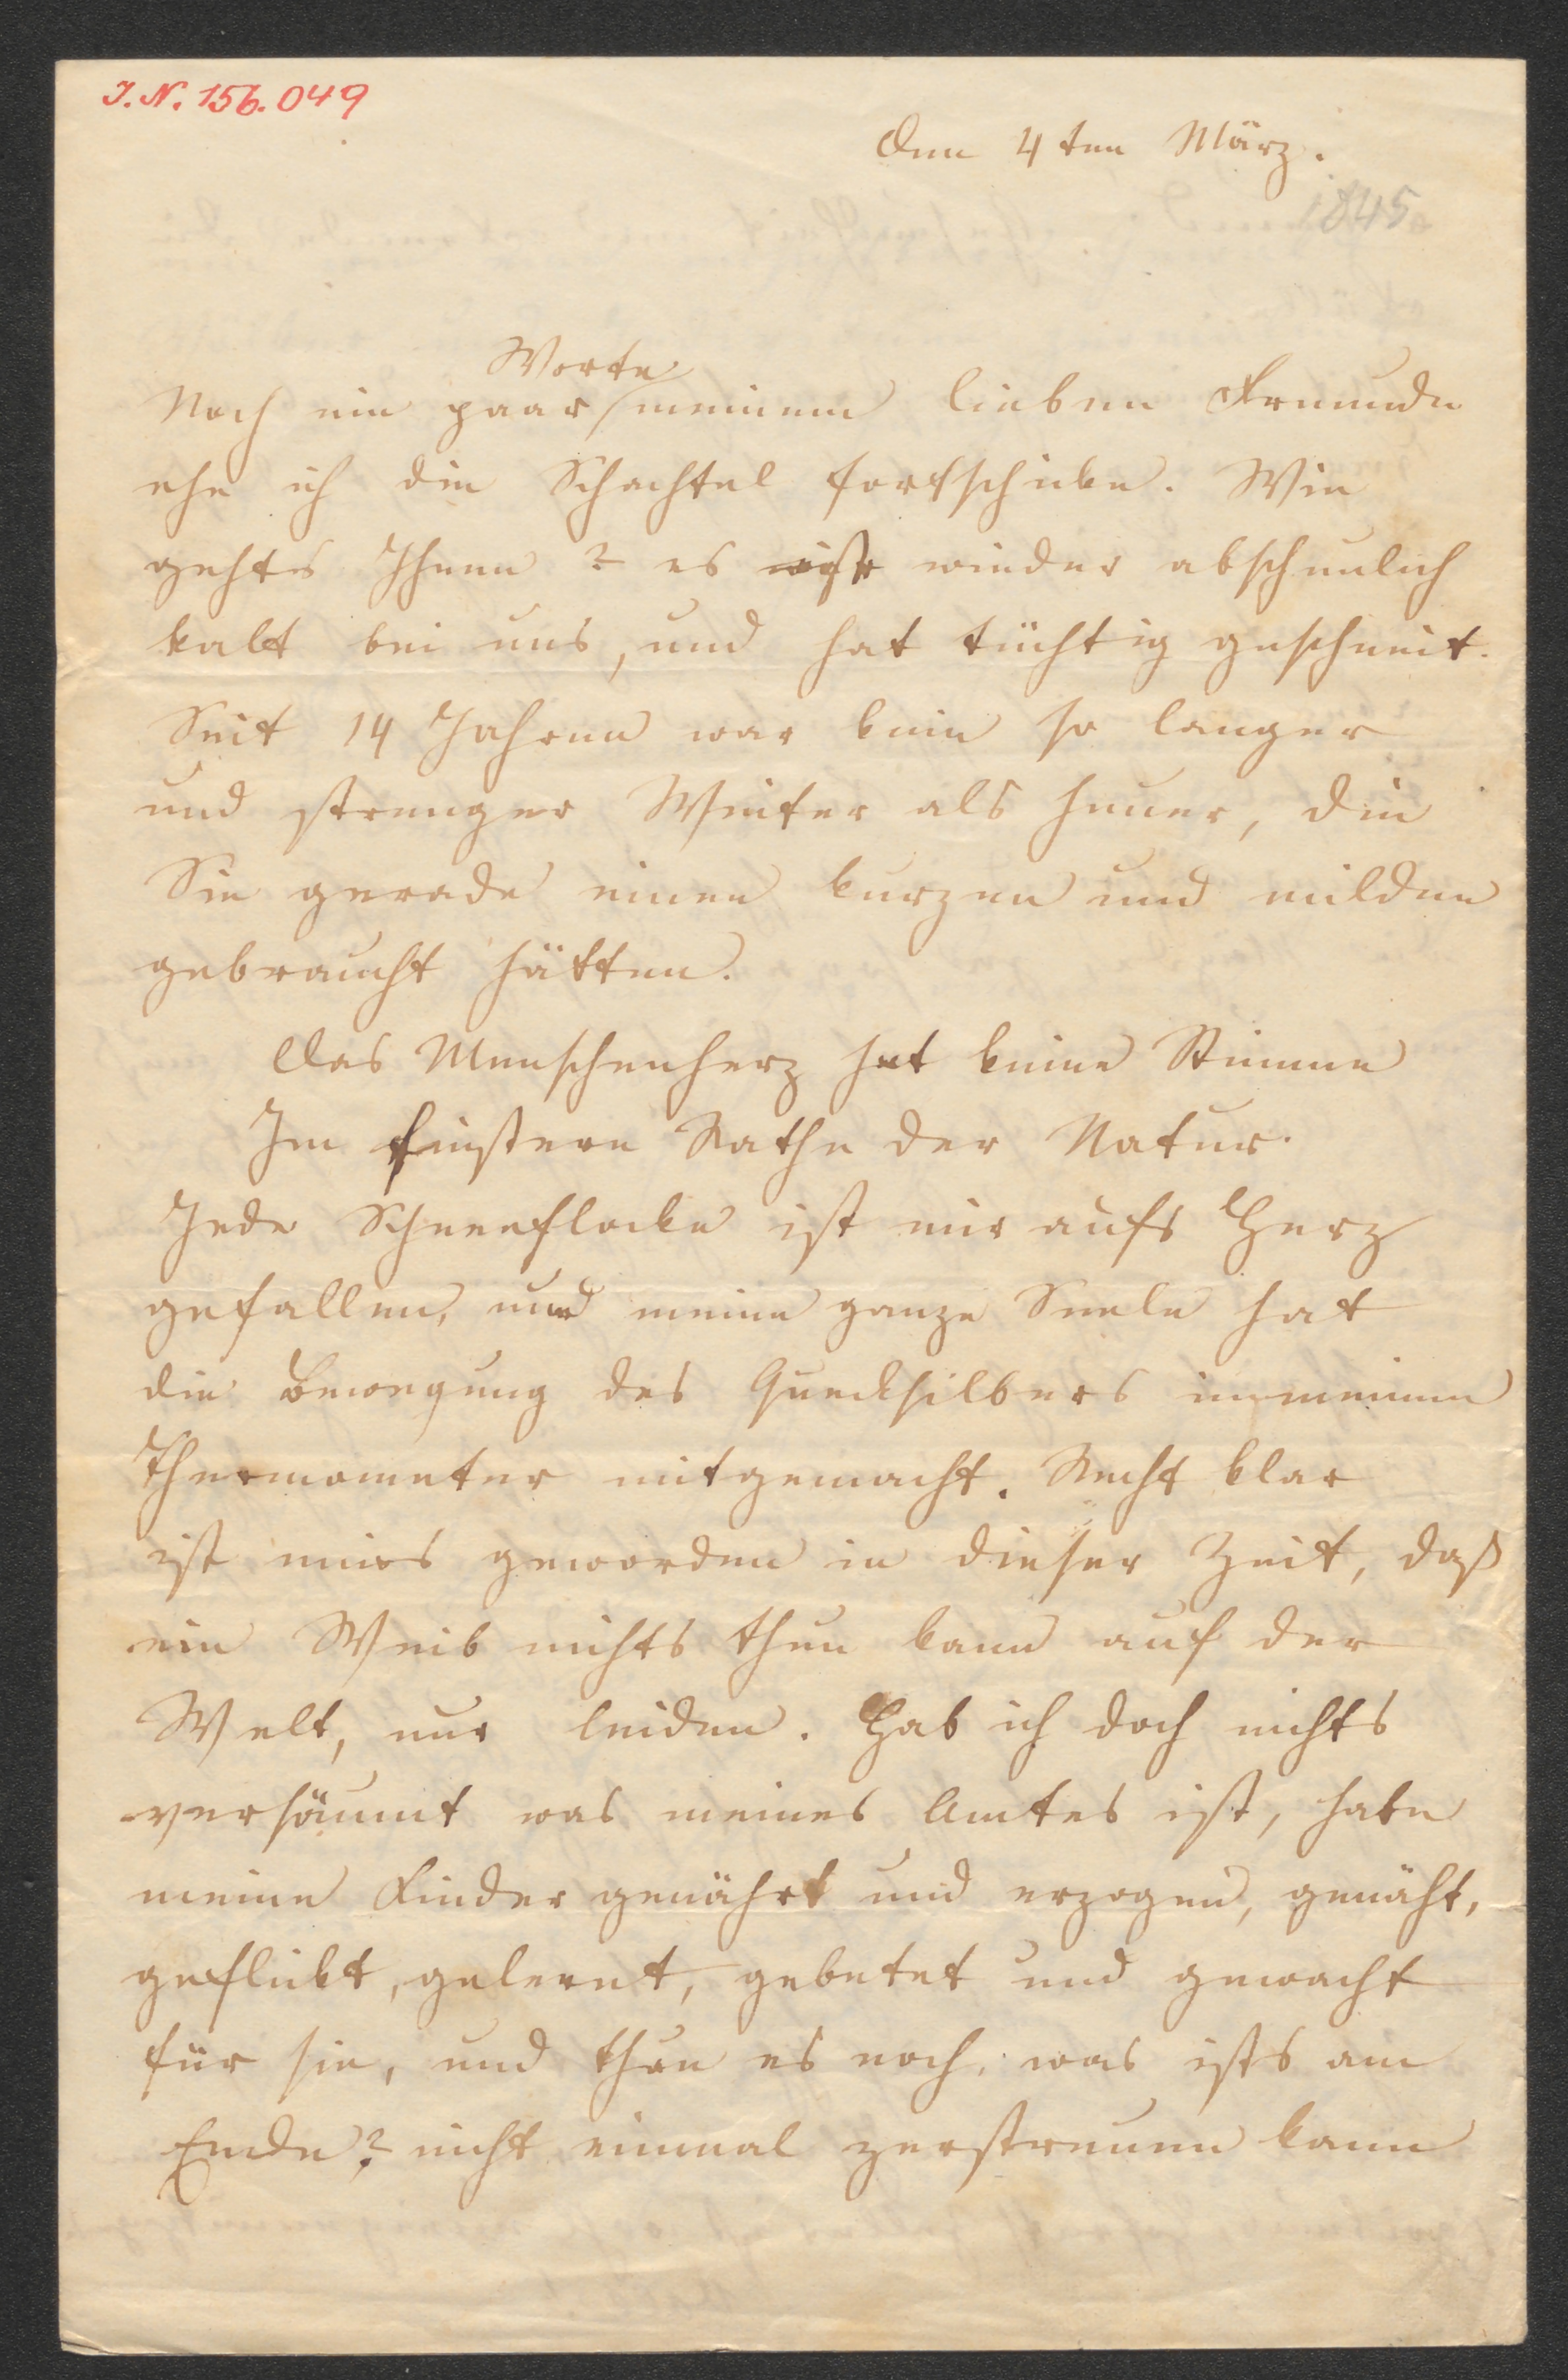 J. N. 156.049
Den 4ten März.
1845
Worte
Noch ein paar meinem lieben Freunde
ehe ich die Schachtel fortschicke. Wie
gehts Ihnen? es ist wieder abscheulich
kalt bei uns, und hat tüchtig geschneit.
Seit 14 Jahren war kein so langer
und strenger Winter als heuer, die
Sie gerade einen kurzen und milden
gebraucht hätten.
Das Menschenherz hat keine Stimme
Im finstern Rathe der Natur.
Jede Schneeflocke ist mir aufs Herz
gefallen, und meine ganze Seele hat
die Bewegung des Quecksilbers in meinem
Thermometer mitgemacht. Recht klar
ist mirs geworden in dieser Zeit, daß
ein Weib nichts thun kann auf der
Welt, nur leiden. Hab ich doch nichts
versäumt was meines Amtes ist, habe
meine Kinder genährt und erzogen, genäht,
geflickt, gelernt, gebetet und gewacht
für sie, und thue es noch, was ists am
Ende? nicht einmal zerstreuen kann